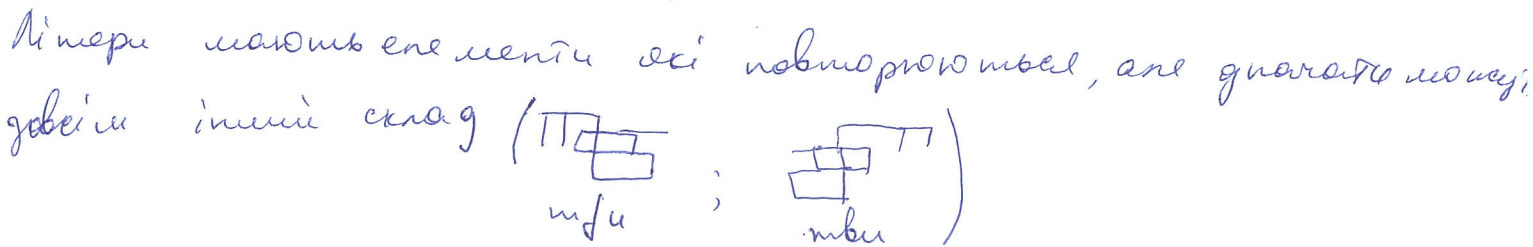 Літери мають елементи які повторюються, але значати можуть
зовсім інший склад (
;
)
тви